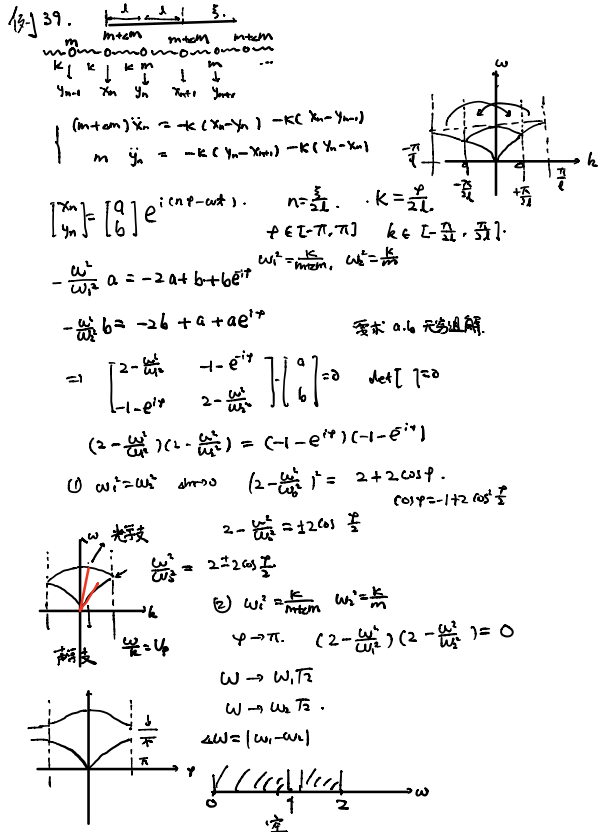 例 39.
l l ξ
m m+Δm m m+Δm m m+Δm
k k k ...
y_{n-1} x_n y_n x_{n+1} y_{n+1}
(m+Δm) ẍ_n = -k(x_n-y_n) - k(x_n-y_{n-1})
m ÿ_n = -k(y_n-x_{n+1}) - k(y_n-x_n)
ω
k
-π/l -π/2l +π/2l π/l
[x_n y_n] = [a b] e^{i(nφ-ωt)}. n=ξ/2l. k=φ/2l.
φ∈[-π,π] k∈[-π/2l, π/2l].
ω₁²=k/(m+Δm), ω₂²=k/m
-ω²/ω₁² a = -2a+b+be^{-iφ}
-ω²/ω₂² b = -2b+a+ae^{iφ}
要求 a.b 无穷组解.
⇒ [2-ω²/ω₁² -1-e^{-iφ} -1-e^{iφ} 2-ω²/ω₂²]·[a b]=0 det[ ]=0
(2-ω²/ω₁²)(2-ω²/ω₂²) = (-1-e^{iφ})(-1-e^{-iφ})
(1) ω₁²=ω₂² Δm→0 (2-ω²/ω₀²)² = 2+2cosφ.
cosφ=-1+2cos²φ/2
2-ω²/ω₀² = ±2cos φ/2
ω 光学支
ω²/ω₀² = 2±2cos φ/2.
k
声学支 ω/k=v_p
(2) ω₁²=k/(m+Δm) ω₂²=k/m
φ→π. (2-ω²/ω₁²)(2-ω²/ω₂²)=0
ω→ω₁√2
ω→ω₂√2.
Δω=|ω₁-ω₂|
π φ
0 1 2 ω